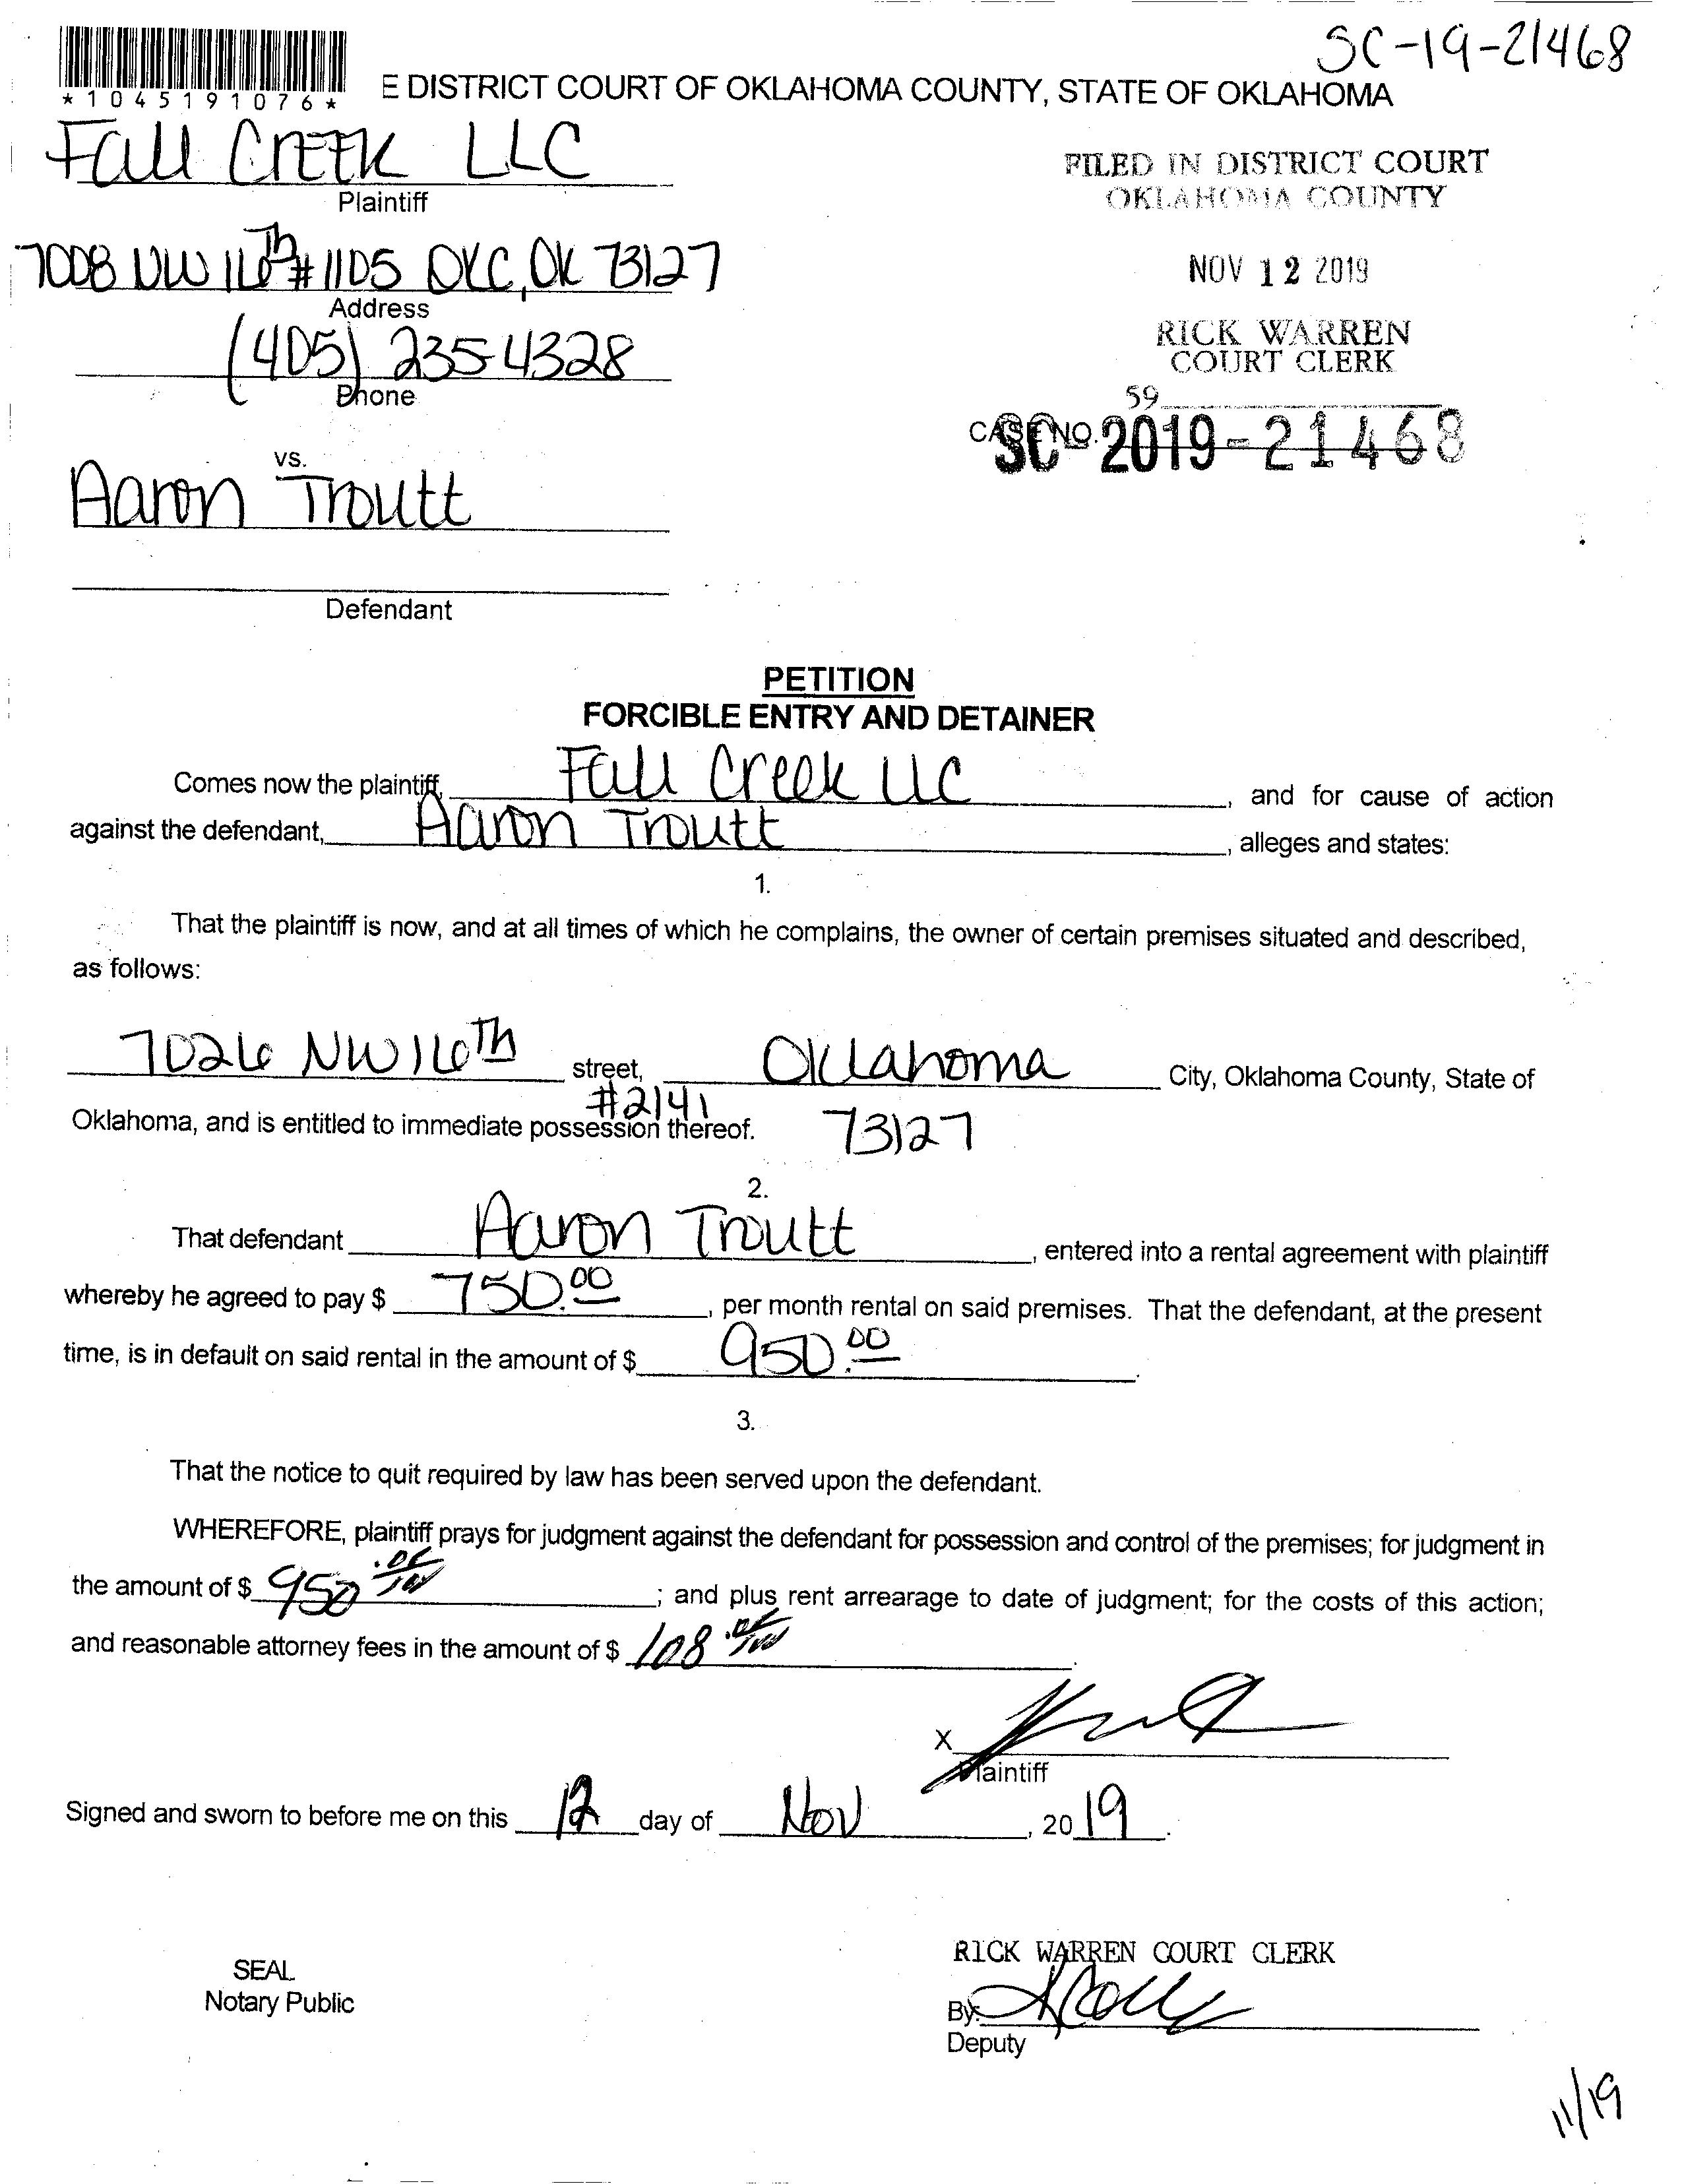 SC-19-21468
*1045191076*
E DISTRICT COURT OF OKLAHOMA COUNTY, STATE OF OKLAHOMA
Fall Creek LLC
Plaintiff
FILED IN DISTRICT COURT
OKLAHOMA COUNTY
7008 NW 16th #1105 OKC, OK 73127
Address
NOV 12 2019
(405) 235-4328
Phone
RICK WARREN
COURT CLERK
59
CASE NO. SC-2019-21468
vs.
Aaron Troutt
Defendant
PETITION
FORCIBLE ENTRY AND DETAINER
Comes now the plaintiff, Fall Creek LLC, and for cause of action
against the defendant, Aaron Troutt, alleges and states:
1.
That the plaintiff is now, and at all times of which he complains, the owner of certain premises situated and described,
as follows:
7026 NW 16th street, Oklahoma City, Oklahoma County, State of
#2141
Oklahoma, and is entitled to immediate possession thereof. 73127
2.
That defendant Aaron Troutt, entered into a rental agreement with plaintiff
whereby he agreed to pay $ 750.00, per month rental on said premises. That the defendant, at the present
time, is in default on said rental in the amount of $ 950.00.
3.
That the notice to quit required by law has been served upon the defendant.
WHEREFORE, plaintiff prays for judgment against the defendant for possession and control of the premises; for judgment in
the amount of $ 950; and plus rent arrearage to date of judgment; for the costs of this action;
and reasonable attorney fees in the amount of $ 108.
X
Plaintiff
Signed and sworn to before me on this 12 day of Nov, 2019.
SEAL
Notary Public
RICK WARREN COURT CLERK
By:
Deputy
11/19